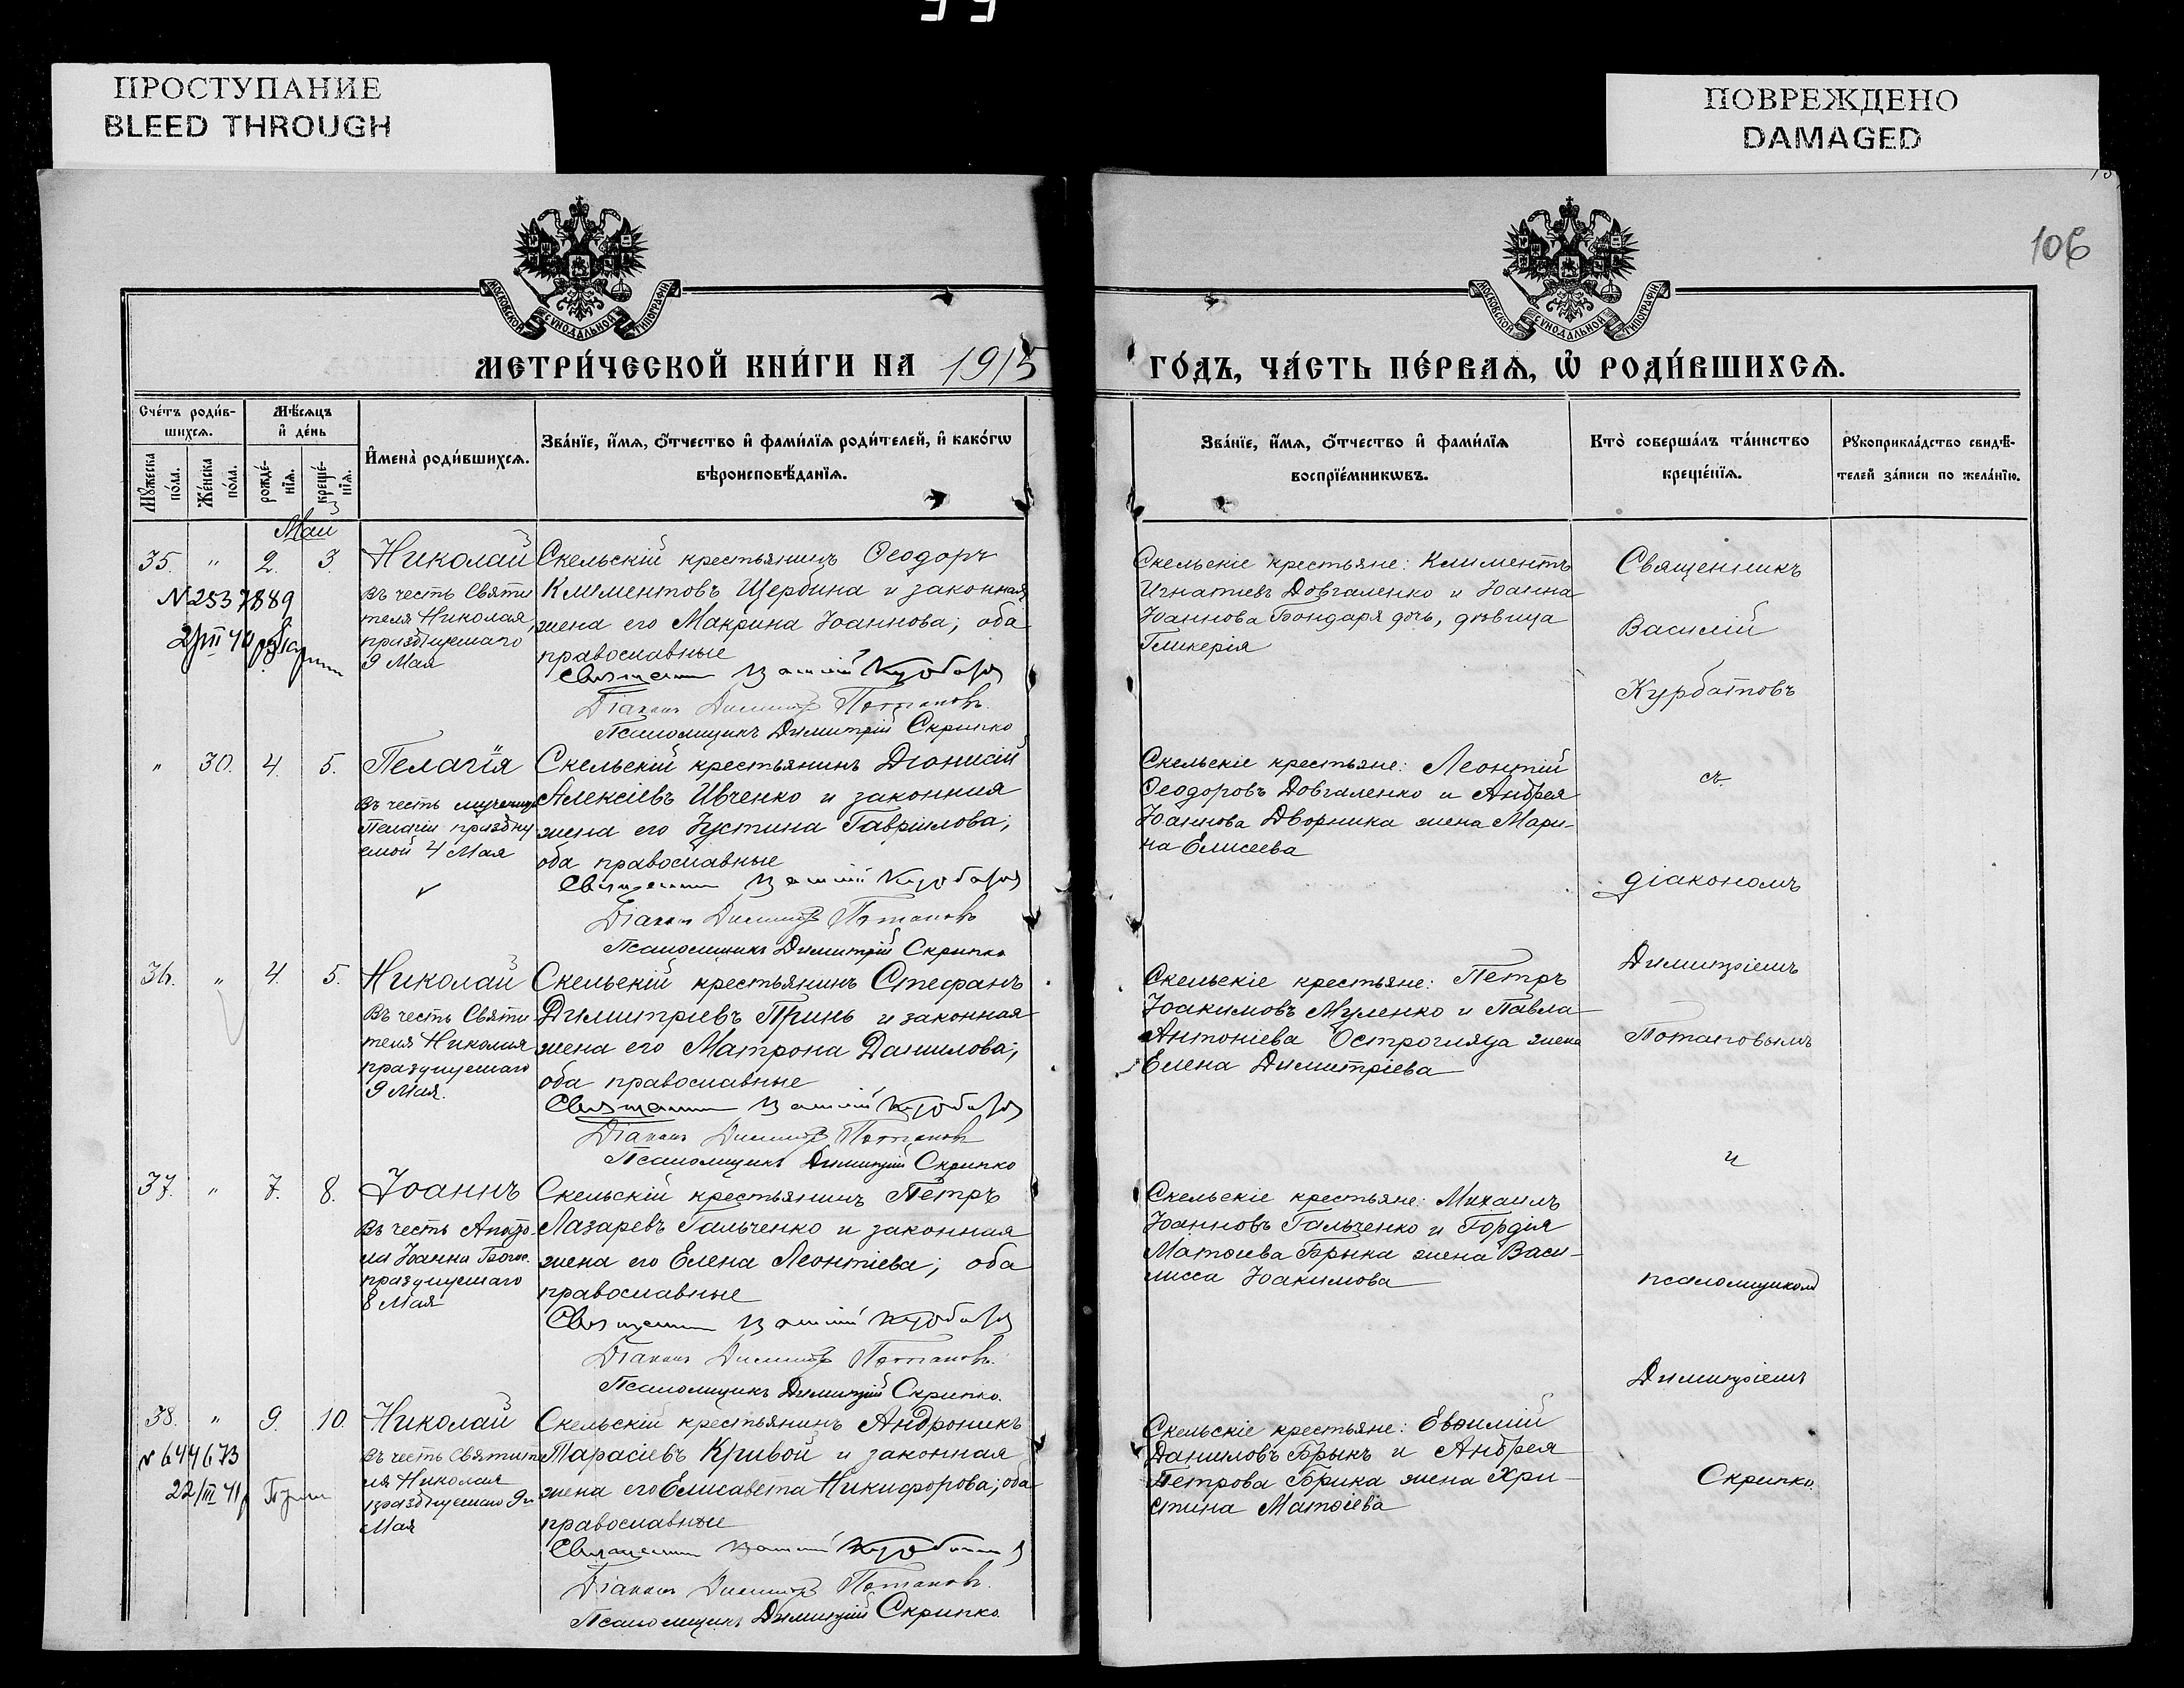 ПРОСТУПАНИЕ
BLEED THROUGH
ПОВРЕЖДЕНО
DAMAGED
106
МОСКОВСКОЙ СѴНОДАЛЬНОЙ ТИПОГРАФІИ
МОСКОВСКОЙ СѴНОДАЛЬНОЙ ТИПОГРАФІИ
МЕТРИ́ЧЕСКОЙ КНИ́ГИ НА 1915
ГО́ДЪ, ЧА́СТЬ ПЕ́РВАѦ, Ѡ҆ РОДИ́ВШИХСѦ.
Сче́тъ роди́в-
шихсѧ.
Мꙋ́жеска по́ла.
Же́нска по́ла.
Мѣ́сѧцъ
и҆ де́нь
рожде́-
нїѧ.
креще́-
нїѧ.
И҆мена̀ роди́вшихсѧ.
Зва́нїе, и҆́мѧ, ѻ҆́тчество и҆ фами́лїѧ роди́телей, и҆ како́гѡ
вѣроисповѣ́данїѧ.
Зва́нїе, и҆́мѧ, ѻ҆́тчество и҆ фами́лїѧ
воспрїе́мникѡвъ.
Кто̀ соверша́лъ та́инство
креще́нїѧ.
Рꙋкоприкла́дство свидѣ́-
телей за́писи по жела́нїю.
Май
35. " 2. 3.
N 2537889
Николай
Въ честь Святи
теля Николая,
празднуемаго
9 Мая
Скельскій крестьянинъ Ѳеодоръ
Климентовъ Щербина и законная
жена его Макрина Іоаннова; оба
православные
Священник Василій Курбатов
Діаконъ Димитрій Потаповъ.
Псаломщикъ Димитрій Скрипко
Скельскіе крестьяне: Климентъ
Игнатіевъ Довгаленко и Іоанна
Іоаннова Бондаря дочь, дѣвица
Гликерія
Священникъ
Василій
Курбатовъ
" 30. 4. 5.
Пелагія
Въ честь мученицы
Пелагіи праздну
емой 4 Мая
Скельскій крестьянинъ Діонисій
Алексіевъ Ивченко и законная
жена его Іустина Гавріилова;
оба православные
Священник Василій Курбатов
Діаконъ Димитрій Потаповъ
Псаломщикъ Димитрій Скрипко
Скельскіе крестьяне: Леонтій
Ѳеодоровъ Довгаленко и Андрея
Іоаннова Дворника жена Мари-
на Елисеева
съ
діакономъ
36. " 4. 5.
Николай
Въ честь Святи
теля Николая
празднуемаго
9 Мая.
Скельскій крестьянинъ Стефанъ
Димитріевъ Принь и законная
жена его Матрона Даниилова;
оба православные
Священник Василій Курбатов
Діаконъ Димитрій Потаповъ
Псаломщикъ Димитрій Скрипко
Скельскіе крестьяне: Петръ
Іоакимовъ Муленко и Павла
Антоніева Острогляда жена
Елена Димитріева
Димитріемъ
Потаповымъ
и
37. " 7. 8.
Іоаннъ
Въ честь Апосто-
ла Іоанна Богос.
празднуемаго
8 Мая
Скельскій крестьянинъ Петръ
Лазаревъ Гальченко и законная
жена его Елена Леонтіева; оба
православные
Священник Василій Курбатов
Діаконъ Димитрій Потаповъ.
Псаломщикъ Димитрій Скрипко.
Скельскіе крестьяне: Михаилъ
Іоанновъ Гальченко и Гордія
Матѳіева Брыка жена Васи-
лисса Іоакимова
псаломщикомъ
Димитріемъ
38. " 9. 10.
N 644673
22/III 41
Николай
Въ честь Святите
ля Николая
празднуемаго 9го
Мая
Скельскій крестьянинъ Андроникъ
Тарасіевъ Кривой и законная
жена его Елисавета Никифорова; оба
православные
Священник Василій Курбатов
Діаконъ Димитрій Потаповъ.
Псаломщикъ Димитрій Скрипко.
Скельскіе крестьяне: Евѳимій
Данииловъ Брыкъ и Андрея
Петрова Брика жена Хри-
стина Матѳіева
Скрипко.